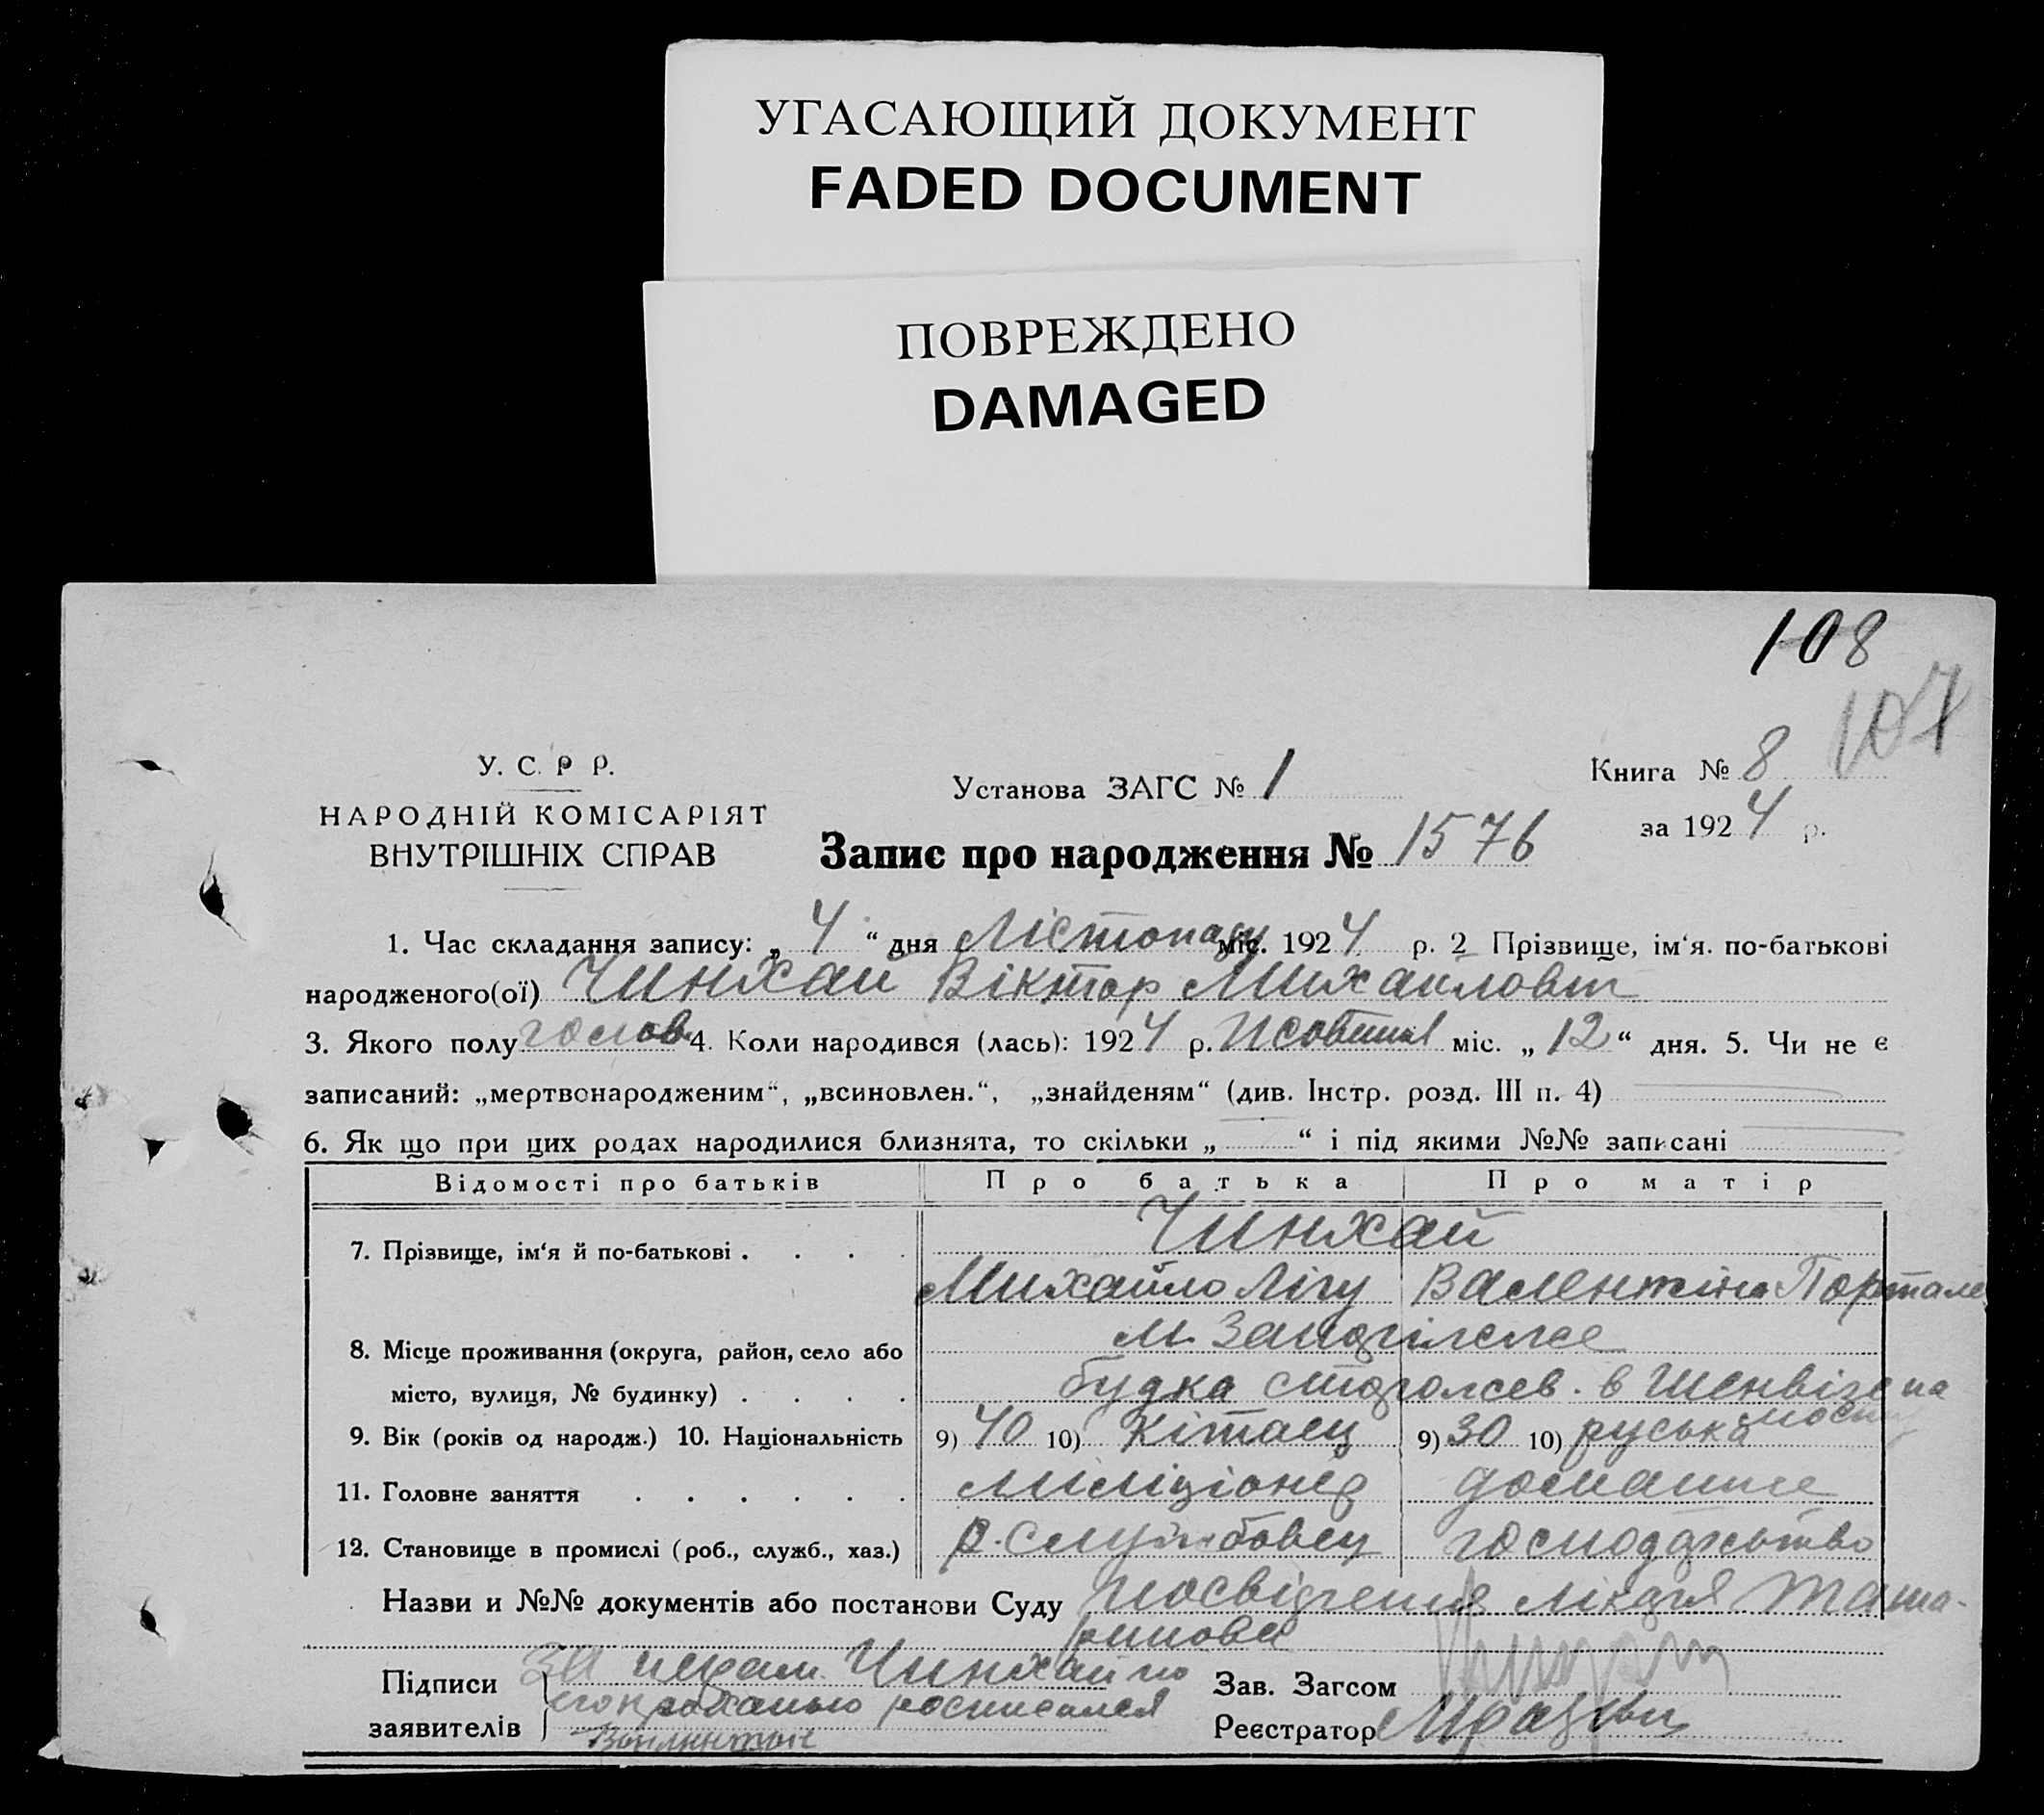 УГАСАЮЩИЙ ДОКУМЕНТ
FADED DOCUMENT
ПОВРЕЖДЕНО
DAMAGED
108
107
У. С. Р Р.
НАРОДНІЙ КОМІСАРІЯТ
ВНУТРІШНІХ СПРАВ
Установа ЗАГС № 1
Книга № 8
за 1924 р.
Запис про народження № 1576
1. Час складання запису: „ 4 “ дня Лістопаду міс. 1924 р. 2 Прізвище, ім‘я. по-батькові
народженого(ої) Чинхай Віктор Михайлович
3. Якого полу 4. Коли народився (лась): 1924 р. міс. „ 12 “ дня. 5. Чи не є
записаний: „мертвонародженим“, „всиновлен.“, „знайденям“ (див. Інстр. розд. III п. 4)
6. Як що при цих родах народилися близнята, то скільки „ “ і під якими №№ записані
Відомості про батьків Про батька Про матір
7. Прізвище, ім‘я й по-батькові . . . . Чинхай
Михайло Лігу Валентіна
8. Місце проживання (округа, район, село або м
місто, вулиця, № будинку) . . . . будка в
9. Вік (років од народж.) 10. Національність 9) 40 10) Кітаец 9) 30 10) руська
11. Головне заняття . . . . . . Міліціонер домашне
12. Становище в промислі (роб., служб., хаз.) службовец господарьство
Назви и №№ документів або постанови Суду посвідчення лікаря Тата-
ринова
Підписи За Чинхай по
заявителів росписался
Зав. Загсом
Реєстратор